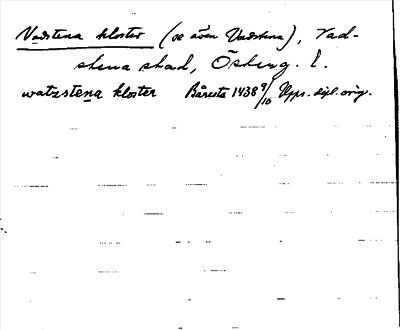 Vadstena kloster (se även Vadstena), Vad-
stena stad, Österg. l.
watzstena kloster Båresta 1438 9/10 Upps. dipl. orig.